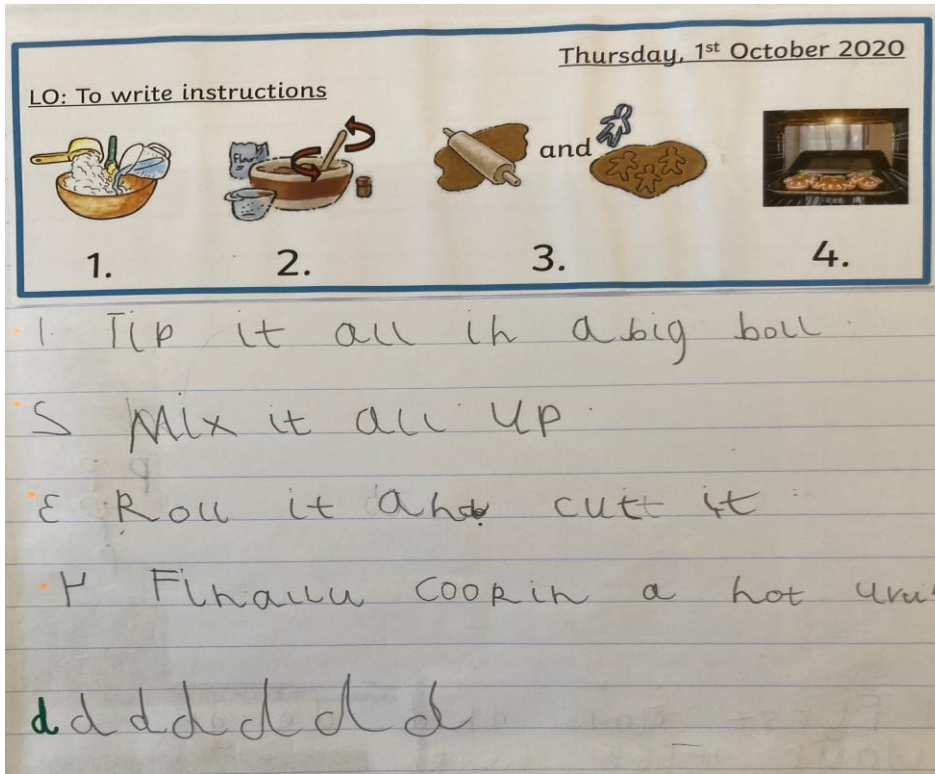 Thursday, 1st October 2020
LO: To write instructions
Flour
and
1. 2. 3. 4.
1 Tip it all in a big boll.
2 Mix it all up.
3 Roll it and cutt it
4 Finallu cook in a hot
d d d d d d d